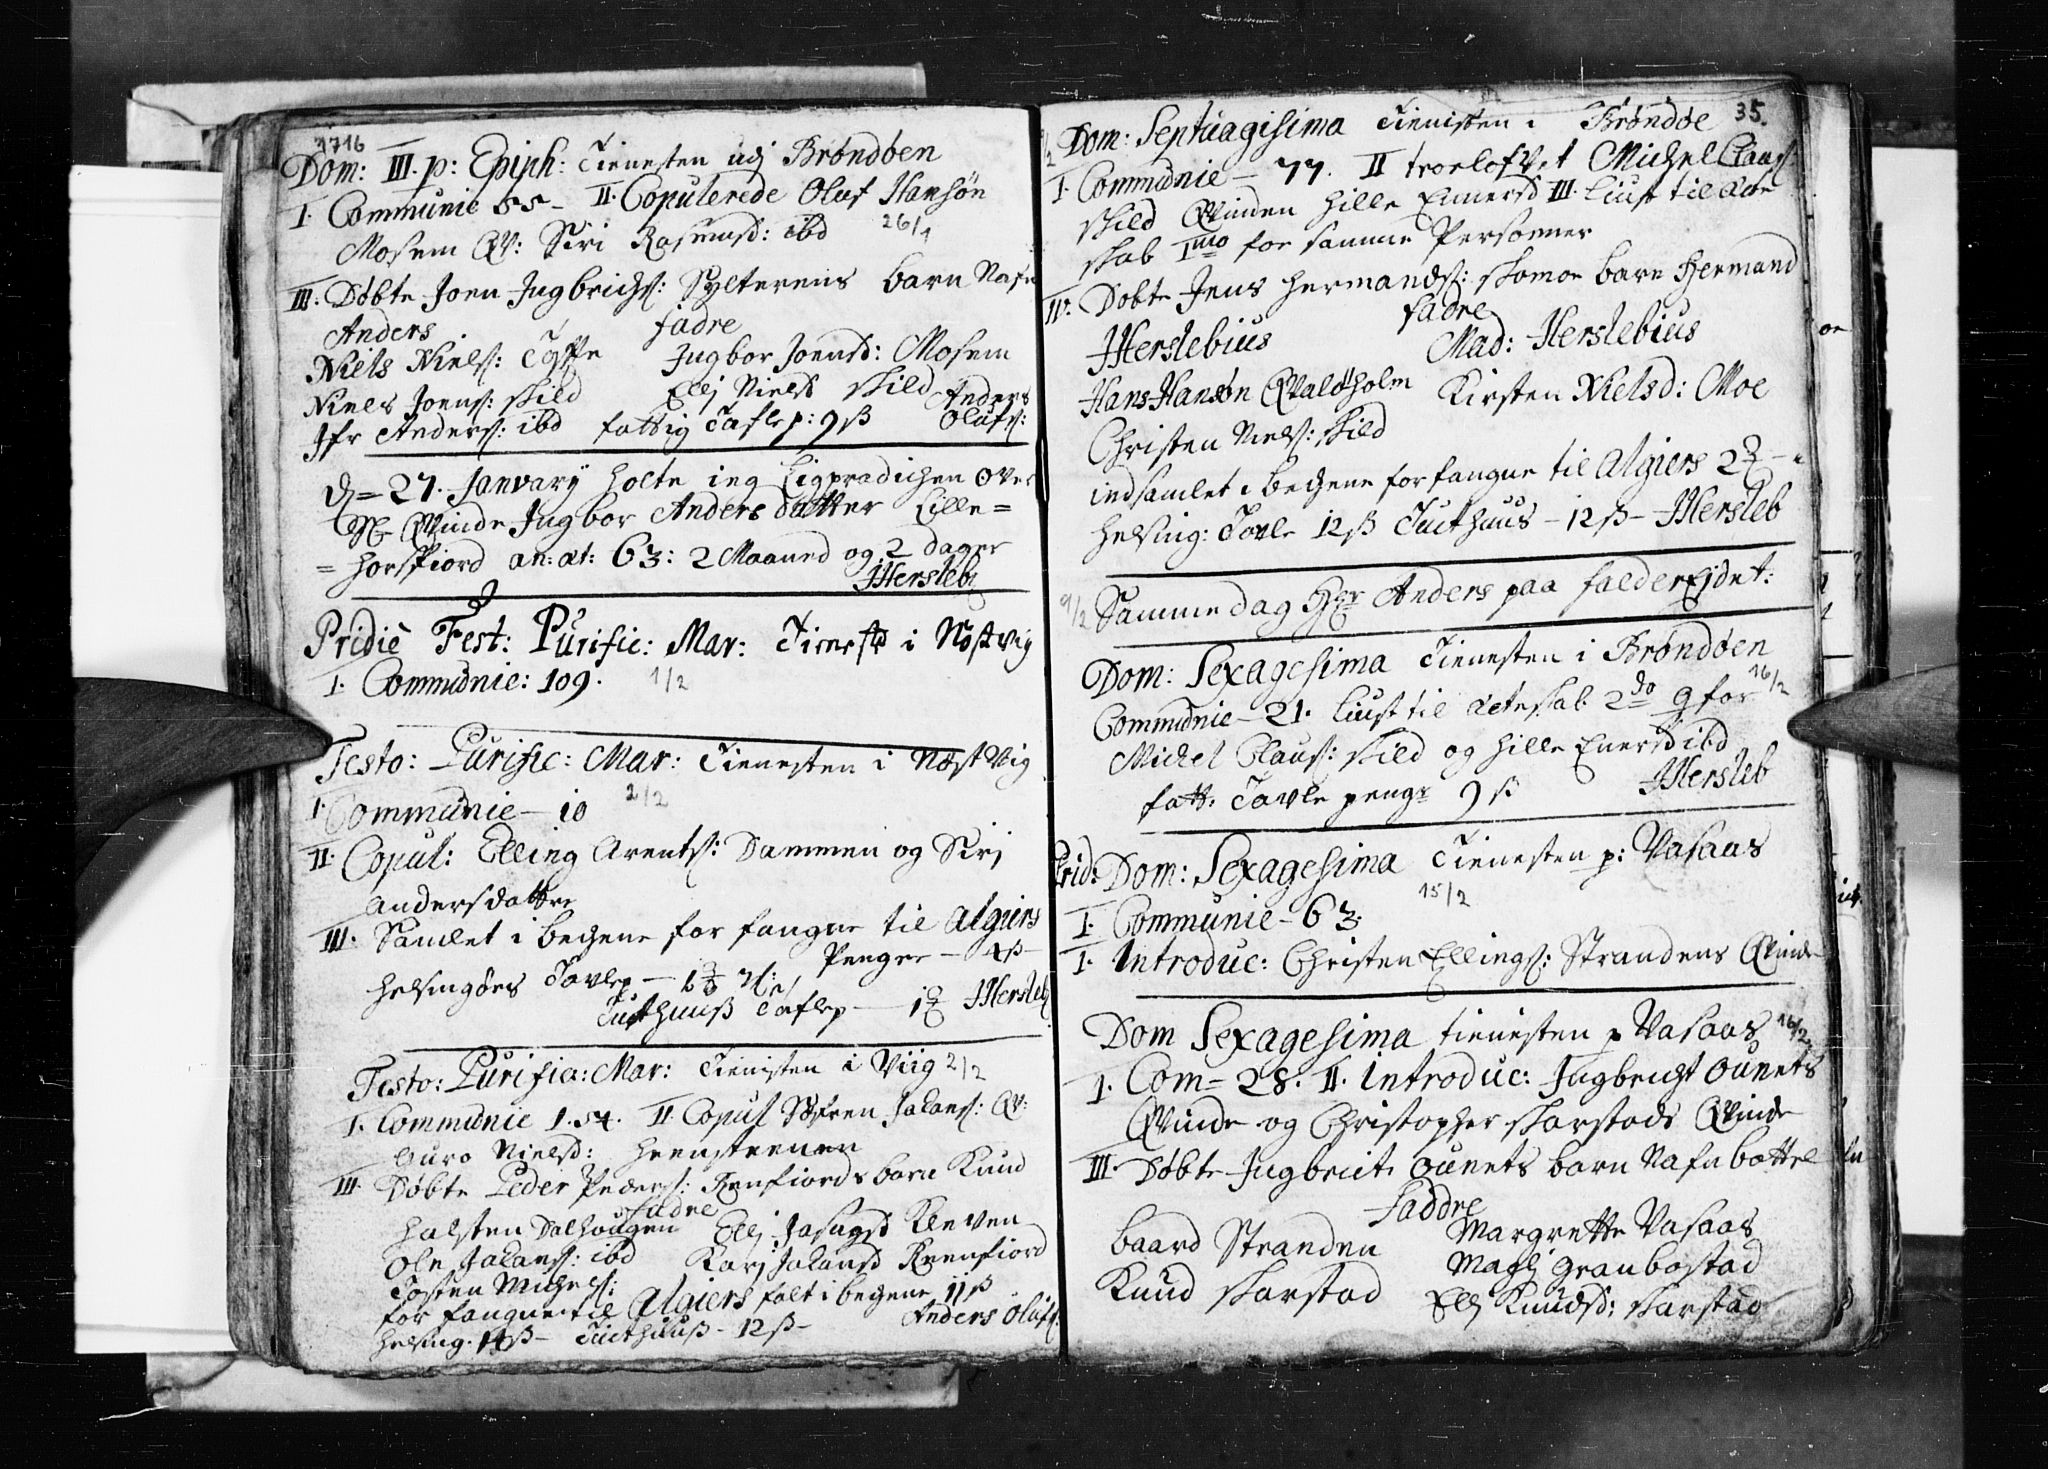 1716
Dom: III. p: Epiph: Tienesten udj Brøndøen
I. Communie 55 - II. Copulerede Oluf Hansøn
Mosem Qv: Siri Rasmusd: ibd 26/1
III. Døbte Joen Ingbrichs: Sylterens barn Nafn
Anders fadre
Niels Niels: Ingbor Joensd: Mosem
Niels Joens: skild Elj Nielsd skild Anders
Anders: ibd fattig Tafle p: 9 ß Olufs:
D = 27. Janvarij holte ieg Ligprædichen over
Sl. Qvinde Ingbor Anders datter Lille=
=horsfiord an: æt: 63: 2 Maaned og 2 dager
JHersleb
Pridiè Fest: Purific: Mar: Tieneste i Nostvig
I. Communie: 109. 1/2
Festo: Purific: Mar: Tienesten i Næstvig
I. Communie - 10 2/2
II. Copul: Elling Arents: Dammen og Sirj
andersdatter
III. Samlet i bechene for fangne til Algiers
Penge - 4 ß -
helsingørs Tavle
Tucthuuß Tafle JHersleb
Festo: Purifia: Mar: Tienisten i Viig 2/2
I. Communie 1.54. II. Copul Søfren Qv:
Guro Nielsd:
III. Døbte Peder Peders: Renfiords barn Knud
fadre
halsten Dalhougen Elj Kleven
Ole ibd Karj Renfiord
Tosten Michels:
for fangne til Algiers falt i bechene 11 ß
helsing. 14 ß - Tucthuuß - 12 ß - Anders Olufs:
35.
Dom: Septuagisima Tienisten i Brøndøe
I. Communie - 77. II troelofvet Michel Claus:
skild Qvinden hille Einersd III. Liust til Ecte
skab Imo for samme Personer
IV. Døbte Jens hermands: skomoe barn Hermand
fadre
JHerslebius Mad: Herslebius
Hans Hansøn Qvalsholm Kirsten Nielsd: Moe
Christen Niels: skild
indsamlet i bechene for fangne til Algiers 2
helsing: Tavle 12 ß Tucthuus - 12 ß - JHersleb
9/2 Samme dag Her Anders paa falderEjdet:
Dom: Sexagesima Tienesten i Brøndøen
16/2
Communie - 21. liust til Ecteskab 2do g for
Michel Claus: skild og hille Enersd ibd
fatt: Tavle penge 9 ß JHersleb
Prid: Dom: Sexagesima Tienesten p: Vasaas
15/2
I. Communie - 63.
I. Introduc: Christen Ellings: Strandens Qvinde
Dom Sexagesima tienesten p Vasaas 16/2
I. Com = 28. II. Introduc: Ingbricht Ounets
Qvinde og Christopher skarstads Qvinde
III. Døbte Ingbricte Ounets barn Nafn bottel
faddre
baard Stranden Margrette Vasaas
Knud skarstad Maglj Graubostad
Elj Knudsd: skarstad